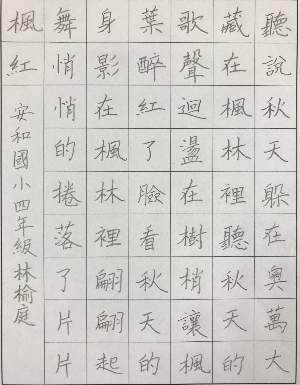 聽說秋天躲在奧萬大
藏在楓林裡聽秋天的
歌聲迴盪在樹梢讓楓
葉醉紅了臉看秋天的
身影在楓林裡翩翩起
舞悄悄的捲落了片片
楓紅
安和國小四年級林榆庭